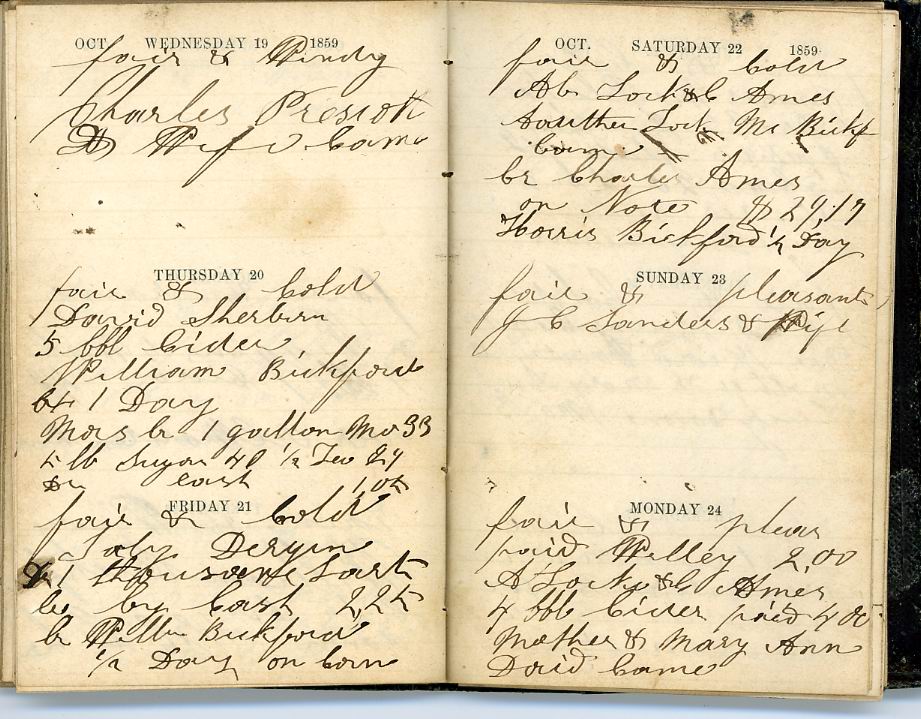 OCT. WEDNESDAY 19 1859
fair & Windy
Charles Prescott
& Wife Came
THURSDAY 20
fair & Cold
David Sherburn
5 bbl Cider
William Bickford
1 Day
Cr 1 gallon Mo 33
lb Sugar 40 1/2 Tea 24
Cash 1,05
FRIDAY 21
fair & Cold
John
1 thousand
Cr by Cash 2,25
Cr Bickford
1/2 Day on Corn
OCT. SATURDAY 22 1859
fair & Cold
Ab Lock & C Ames
Lock Mr Bickf
Came
Cr Charles Ames
on Note $ 29.17
Horris Bickford 1/2 Day
SUNDAY 23
fair & pleasant
J C Sanders & Wife
MONDAY 24
fair & pleas
paid Willey 2,00
A Lock & C Ames
4 bbl Cider paid 4 00
Mother & Mary Ann
David Came